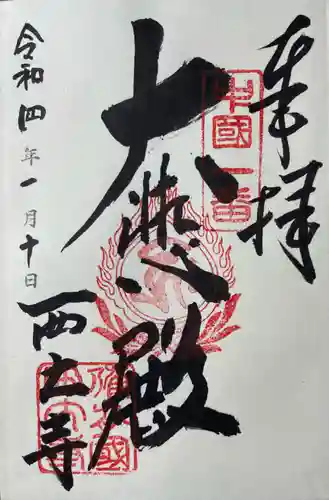 奉拝
中國一番
大悲殿
令和四年一月十日
西大寺